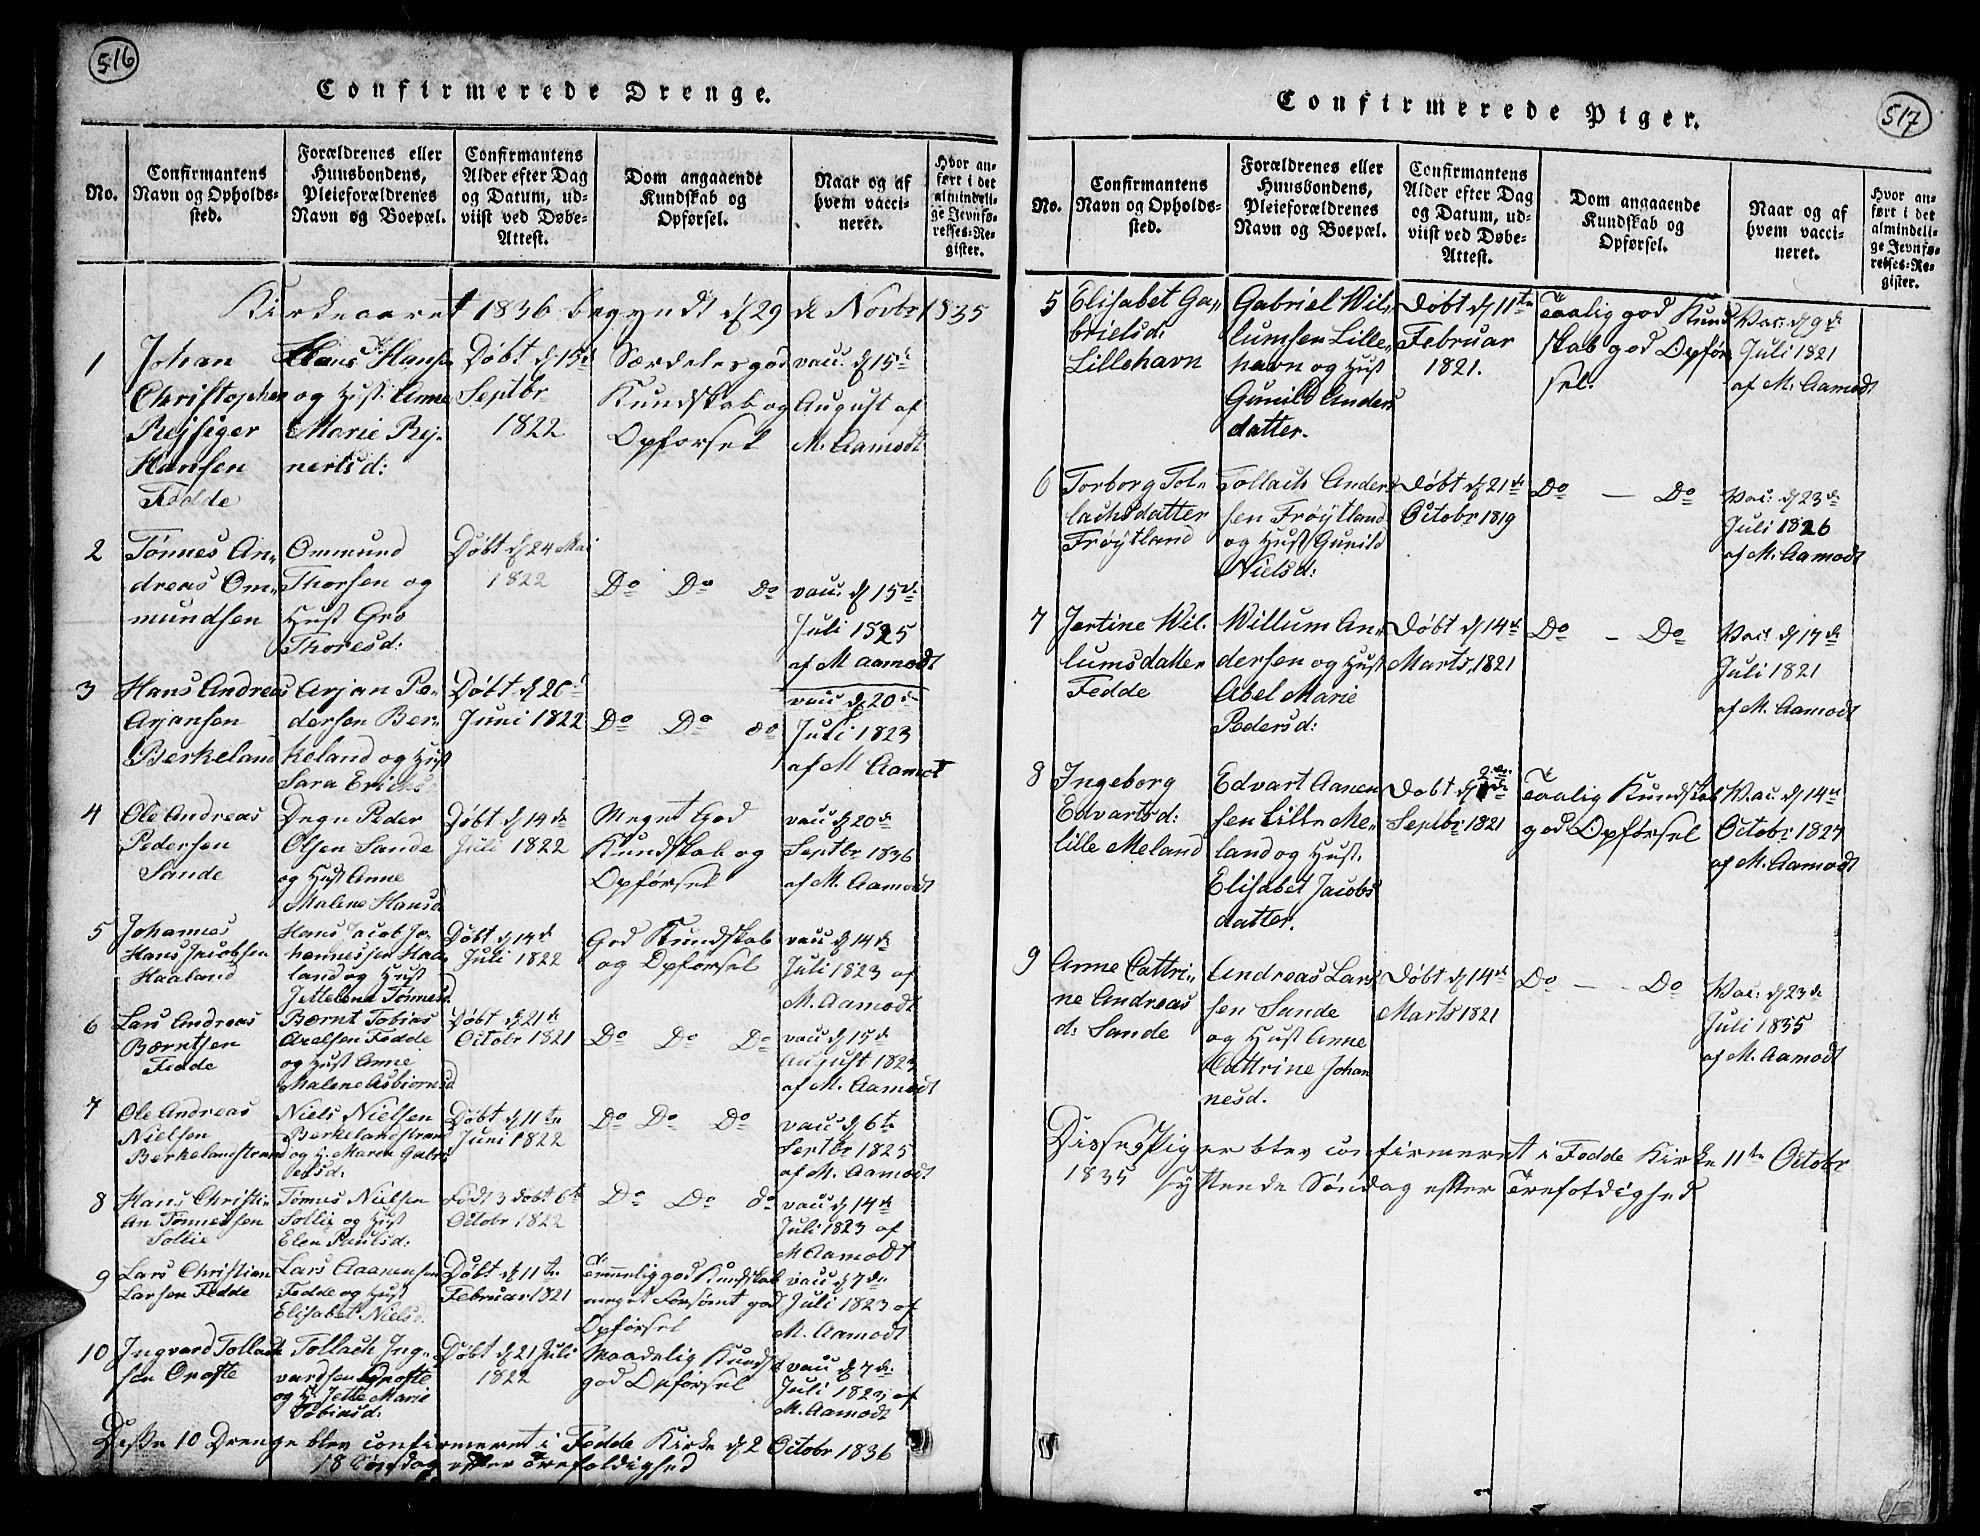 516
Confirmerede Drenge.
No.
Confirmantens
Navn og Opholds-
sted.
Forældrenes eller
Huusbondens,
Pleieforældrenes
Navn og Boepæl.
Confirmantens
Alder efter Dag
og Datum, ud-
viist ved Døbe-
Attest.
Dom angaaende
Kundskab og
Opførsel.
Naar og af
hvem vacci-
neret.
Hvor an-
ført i det
almindeli-
ge Jevnfø-
relses-Re-
gister.
Kirkeaaret 1836 begyndt d. 29de Novbr 1835
1
Johan
Christopher
Rejsiger
Hansen
Fedde
Hans Hansen
og Hust. Anne
Marie Rej-
nertsd:
Døbt d 15de
Septbr
1822
Særdeles god
Kundskab og
Opførsel
vau. d 15de
August af
M. Aamodt
2
Tønnes An-
dreas Om-
mundsen
Ommund
Thorsen og
Hust Gro
Thoresd:
Døbt d 24 Mai
1822
Do Do do
vau. d 15de
Juli 1825
af M Aamodt
3
Hans Andreas
Arjansen
Berkeland
Arjan Pe-
dersen Ber-
keland og Hust
Sara Ericks
Døbt d 26
Juni 1822
Do Do do
vau d 20de
Juli 1823
af M Aamodt
4
Ole Andreas
Pedersen
Sande
Degn Peder
Olsen Sande
og Hust Anne
Malene Hansd
Døbt d 14de
Juli 1822
Meget God
Kundskab og
Opførsel
vau d 20de
Septbr 1836
af M. Aamodt
5
Johannes
Hans Jacobsen
Haaland
Hans Jacob Jo-
hannessen Haa-
land og Hust
Jettelena Tønnesd
Døbt d 14de
Juli 1822
God Kundskab
og Opførsel
vau d 14de
Juli 1823 af
M. Aamodt
6
Lars Andreas
Bærntsen
Fedde
Bærnt Tobias
Axelsen Fedde
og Hust Anne
Malene Asbiørnsd
Døbt d 21de
Octobr 1821
Do Do Do
vau d 15de
August 1823
af M. Aamodt
7
Ole Andreas
Nielsen
Berkelandstrand
Niels Nielsen
Berkelandstrand
og H. Maren Gabri
elsd:
Døbt d 11te
Juni 1822
Do Do Do
vau d 6te
Septbr 1825
af M. Aamodt
8
Hans Christi-
an Tønnessen
Sollie
Tønnes Nielsen
Sollie og Hust
Elen Paulsd:
Født 3 døbt 6te
Octobr 1822
Do Do do
vau d 14de
Juli 1823 af
M Aamodt
9
Lars Christian
Larsen Fedde
Lars Aaanensen
Fedde og Hust
Elisabet Nielsd:
Døbt d 11te
Februar 1821
Temmelig god Kundskab
meget Forsømt god
Opførsel
vau d 7de
Juli 1823 af
M. Aamodt
10
Ingvard Tollach
sen Opofte
Tollach Ing-
vardsen Opofte
og H: Jette Marie
Tobiasd:
Døbt d 21 Juli
1822
Maadelig Kundsk
god Opførsel
vau d 7de
Juli 1823 af
M. Aamodt
Disse 10 Drenge blev confirmeret i Fedde Kirke d 2 Octobr 1836
18 Søndag efter Trefoldighed
517
Confirmerede Piger.
No.
Confirmantens
Navn og Opholds-
sted.
Forældrenes eller
Huusbondens,
Pleieforældrenes
Navn og Boepæl.
Confirmantens
Alder efter Dag
og Datum, ud-
viist ved Døbe-
Attest.
Dom angaaende
Kundskab og
Opførsel.
Naar og af
hvem vacci-
neret.
Hvor an-
ført i det
almindeli-
ge Jevnfø-
relses-Re-
gister.
5
Elisabet Ga-
brielsd:
Lillehavn
Gabriel Wil-
lumsen Lille-
havn og Hust
Gunild Anders
datter.
Døbt d 11te
Februar
1821.
Taalig god Kund
skab god Opfør
sel.
Vac: d 9de
Juli 1821
af M. Aamodt
6
Torborg Tol-
lachsdatter
Frøytland
Tollach Ander
sen Frøytland
og Hust Gunild
Nielsd:
Døbt d 21de
Octobr 1819
Do — Do
Vac: d 23de
Juli 1826
af M. Aamodt
7
Jertine Wil-
lumsdatter
Fedde
Willum An-
dersen og Hust
Abel Marie
Pedersd:
Døbt d 14de
Marts 1821
Do - Do
Vac: d 17de
Juli 1821
af M. Aamodt
8
Ingeborg
Edvartsd:
lille Meland
Edvart Aanen
sen Lille Me-
land og Hust.
Elisabet Jacobs
datter.
Døbt d 2de
Septbr 1821
Taalig Kundskab
god Opførsel
Vac. d 14de
Octobr 1827
af M. Aamodt
9
Anne Cattri-
ne Andreas
d: Sande
Andreas Lars
sen Sande
og Hust Anne
Cattrine Johan
nesd.
Døbt d 14de
Marts 1821
Do — - Do
Vac: d 23de
Juli 1835
af M. Aamodt
Disse Piger blev confirmeret i Fedde Kirke 11te Octobr
1835 syttende Søndag efter Trefoldighed